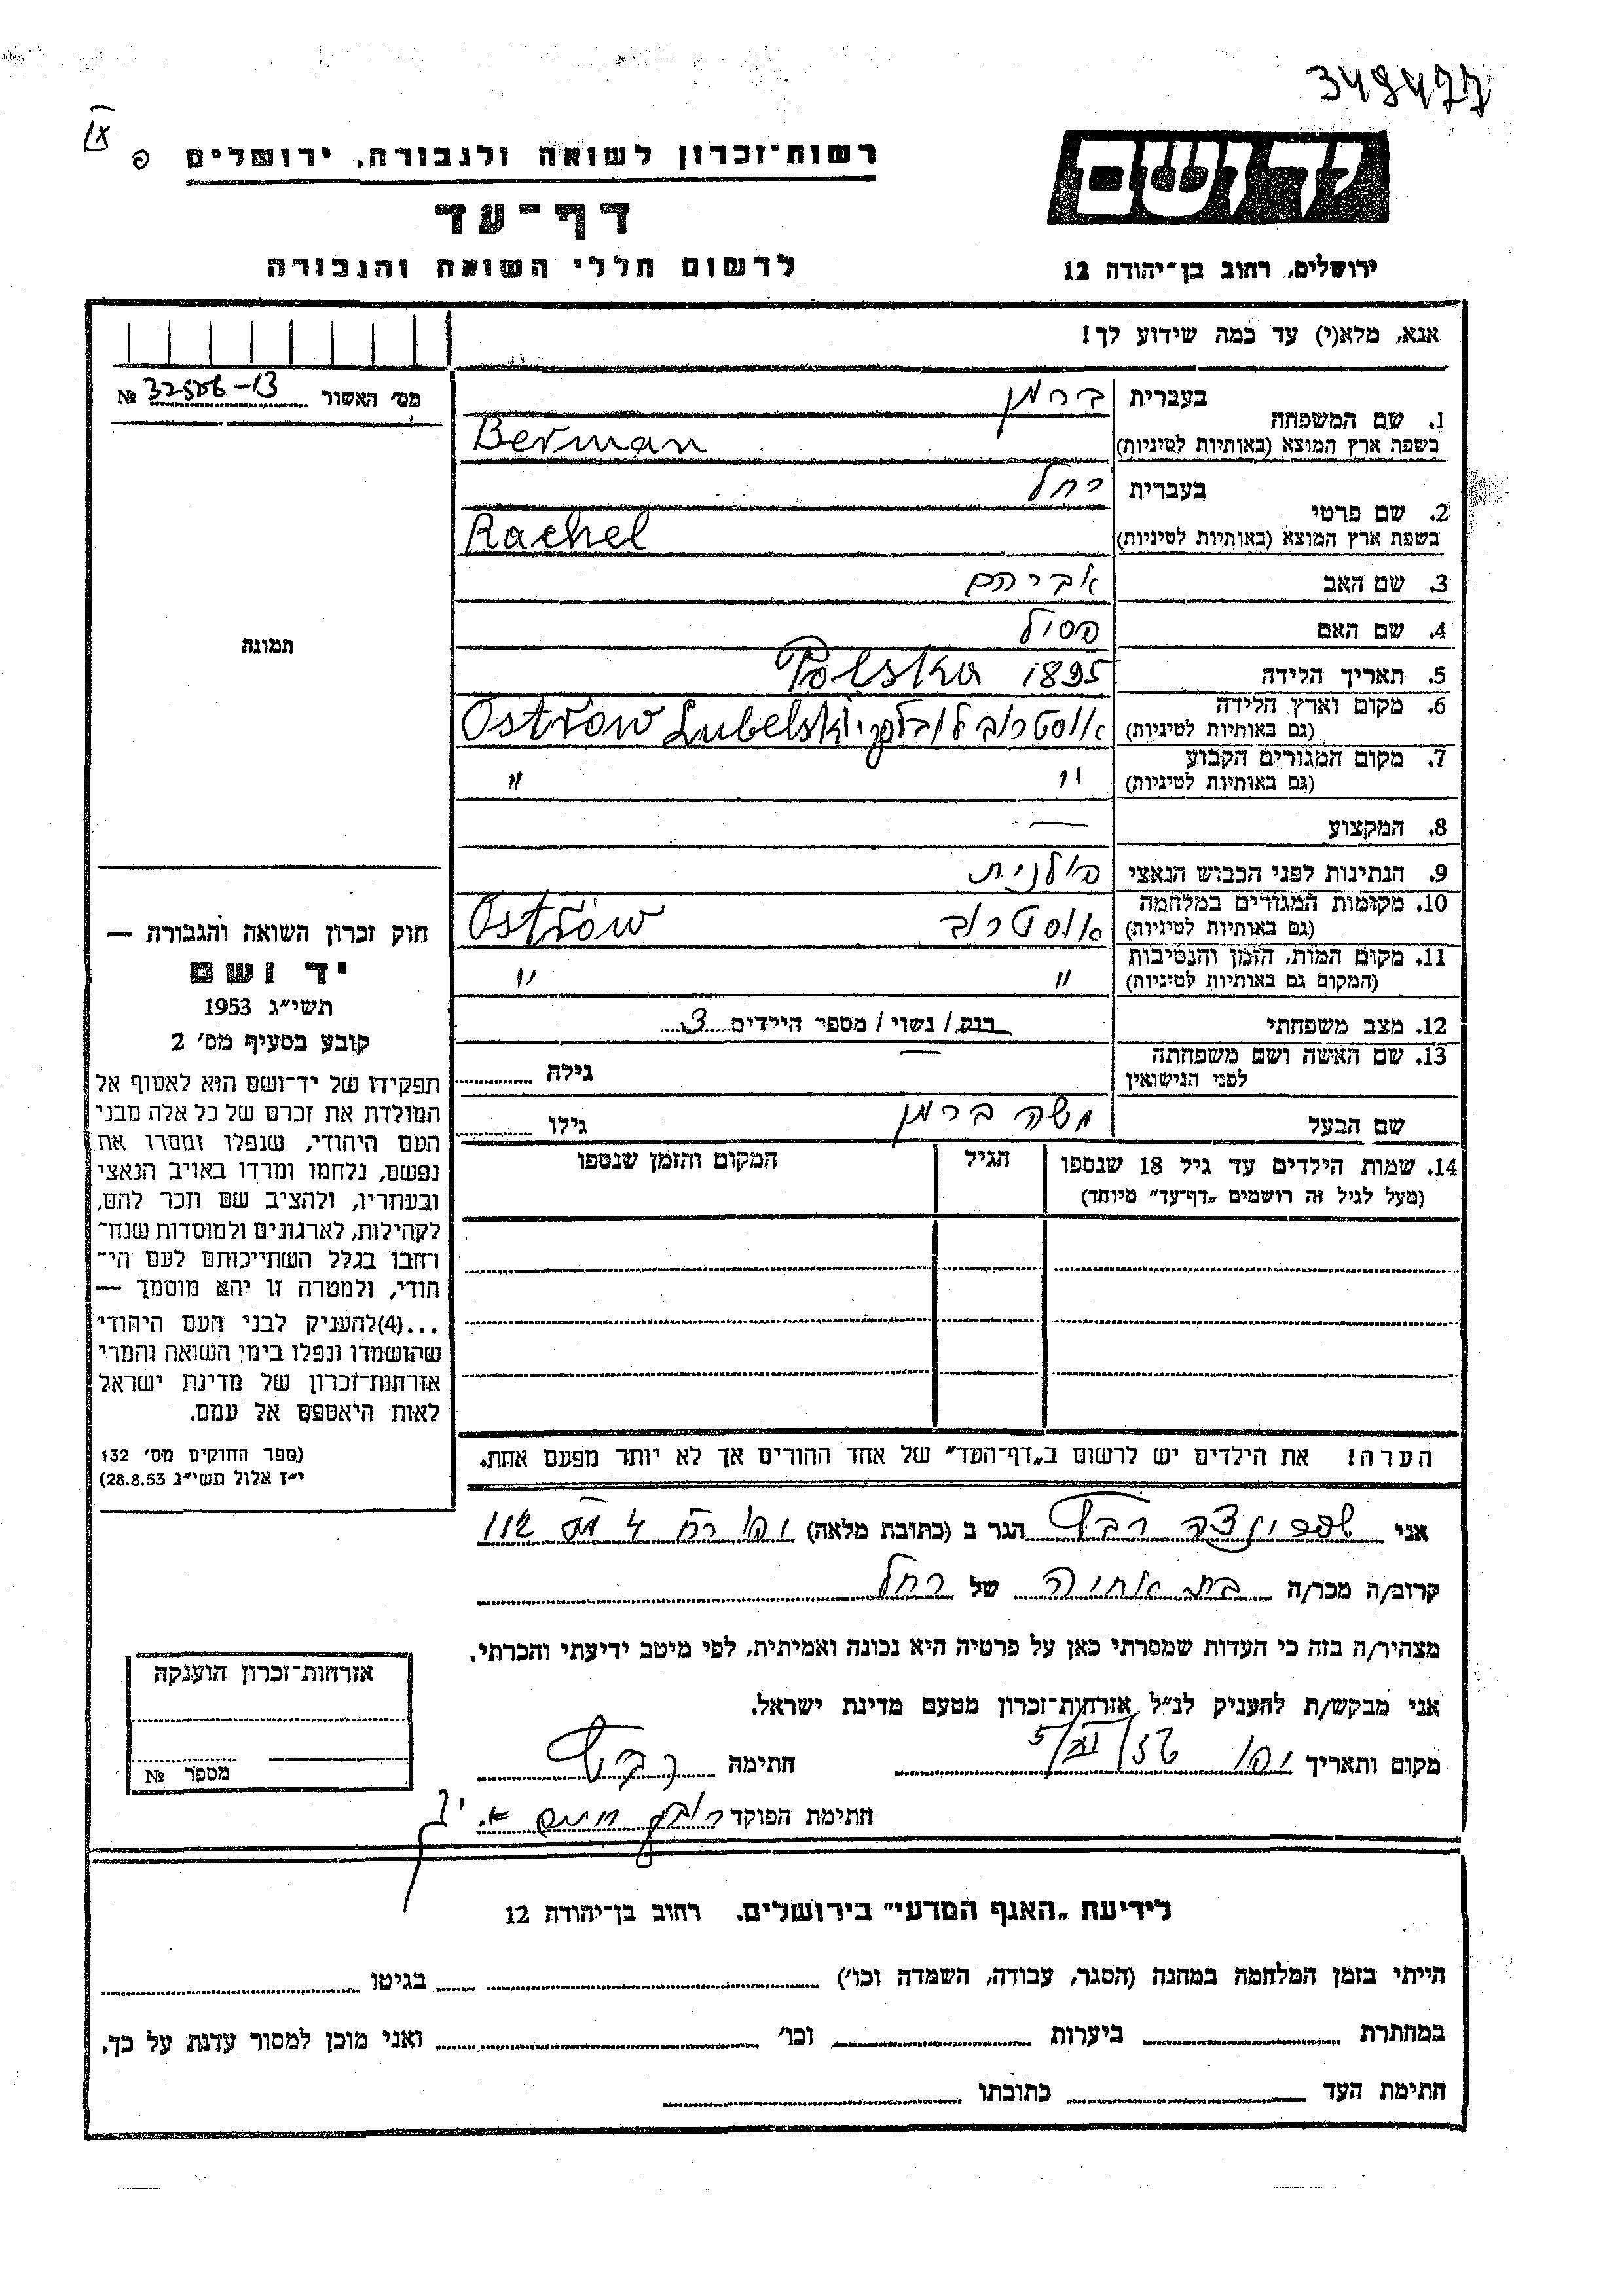 348477
רשות־זכרון לשואה ולגבורה, ירושלים
דף־עד
לרשום חללי השואה והגבורה
יד ושם
ירושלים, רחוב בן־יהודה 12
אנא, מלא(י) עד כמה שידוע לך!
מס׳ האשור № 32506-13
1. שם המשפחה
בעברית ברמן
בשפת ארץ המוצא (באותיות לטיניות) Berman
2. שם פרטי
בעברית רחל
בשפת ארץ המוצא (באותיות לטיניות) Rachel
3. שם האב
4. שם האם
5. תאריך הלידה 1895 Polska
6. מקום וארץ הלידה
(גם באותיות לטיניות) אוסטרוב Ostrów Lubelski
7. מקום המגורים הקבוע
(גם באותיות לטיניות) " "
8. המקצוע —
9. הנתינות לפני הכבוש הנאצי פולנית
10. מקומות המגורים במלחמה
(גם באותיות לטיניות) אוסטרוב Ostrów
11. מקום המות, הזמן והנסיבות
(המקום גם באותיות לטיניות) " "
12. מצב משפחתי רוק / נשוי / מספר הילדים 3
13. שם האשה ושם משפחתה
לפני הנישואין — גילה
שם הבעל משה ברמן גילו
14. שמות הילדים עד גיל 18 שנספו
(מעל לגיל זה רושמים „דף־עד" מיוחד)
הגיל
המקום והזמן שנספו
הערה! את הילדים יש לרשום ב„דף־העד" של אחד ההורים אך לא יותר מפעם אחת.
תמונה
חוק זכרון השואה והגבורה —
יד ושם
תשי״ג 1953
קובע בסעיף מס׳ 2
תפקידו של יד־ושם הוא לאסוף אל
המולדת את זכרם של כל אלה מבני
העם היהודי, שנפלו ומסרו את
נפשם, נלחמו ומרדו באויב הנאצי
ובעוזריו, ולהציב שם וזכר להם,
לקהילות, לארגונים ולמוסדות שנח־
רחבו בגלל השתייכותם לעם הי־
הודי, ולמטרה זו יהא מוסמך —
...(4)להעניק לבני העם היהודי
שהושמדו ונפלו בימי השואה והמרי
אזרחות־זכרון של מדינת ישראל
לאות היאספם אל עמם.
(ספר החוקים מס׳ 132
י״ז אלול תשי״ג 28.8.53)
אני הגר ב (כתובת מלאה)
קרוב/ה מכר/ה בת אחיה של רחל
מצהיר/ה בזה כי העדות שמסרתי כאן על פרטיה היא נכונה ואמיתית, לפי מיטב ידיעתי והכרתי.
אני מבקש/ת להעניק לנ״ל אזרחות־זכרון מטעם מדינת ישראל.
מקום ותאריך חתימה
חתימת הפוקד
אזרחות־זכרון הוענקה
מספר №
לידיעת „האגף המדעי" בירושלים. רחוב בן־יהודה 12
הייתי בזמן המלחמה במחנה (הסגר, עבודה, השמדה וכו׳) בגיטו
במחתרת ביערות וכו׳ ואני מוכן למסור עדות על כך.
חתימת העד כתובתו